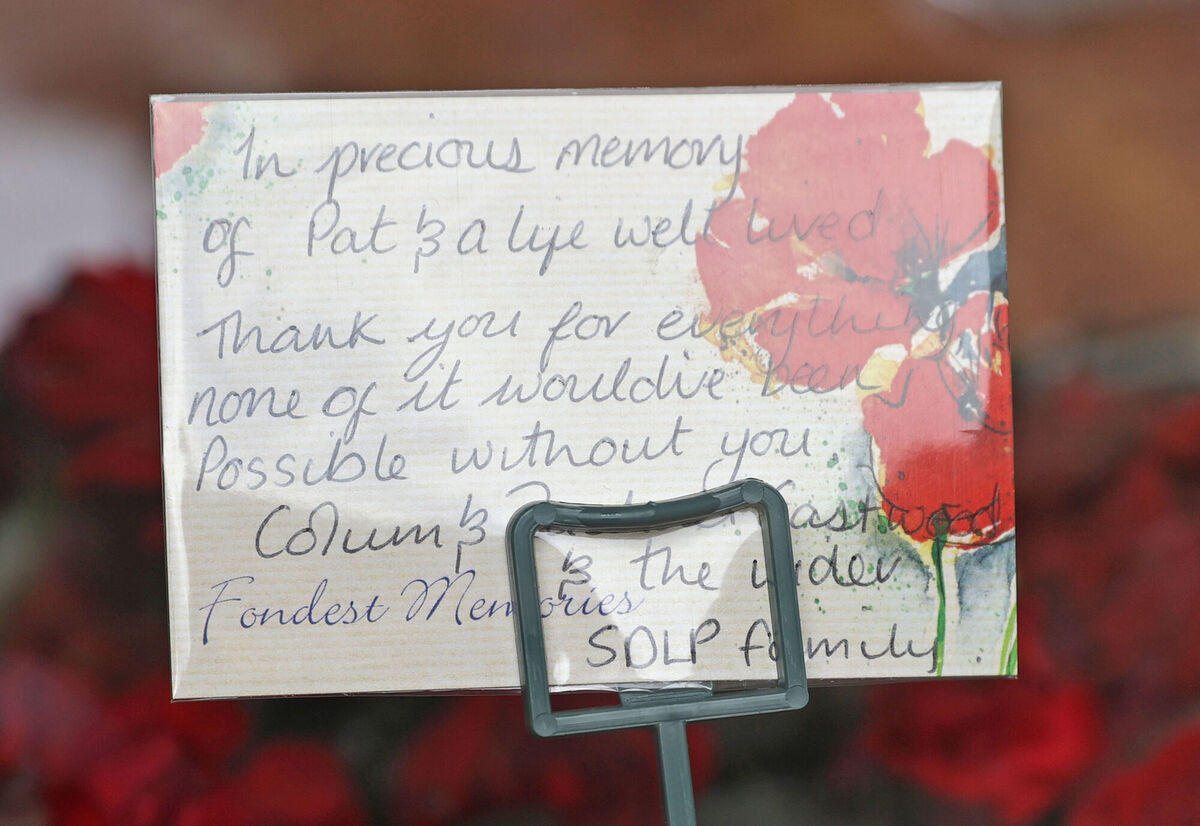 In precious memory
of Pat & a life well lived
Thank you for everything
none of it would've been
Possible without you
Colum & Eastwood
& the wider
Fondest Memories
SDLP family.